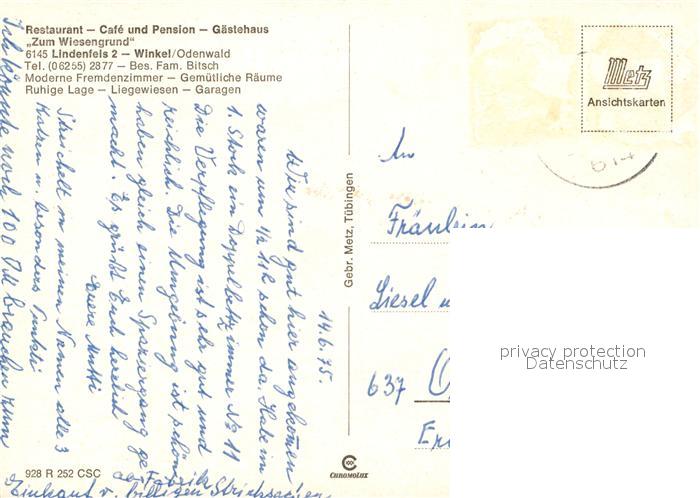 Restaurant – Café und Pension – Gästehaus
„Zum Wiesengrund"
6145 Lindenfels 2 – Winkel/Odenwald
Tel. (06255) 2877 – Bes. Fam. Bitsch
Moderne Fremdenzimmer – Gemütliche Räume
Ruhige Lage – Liegewiesen – Garagen
Metz
Ansichtskarten
614
Gebr. Metz, Tübingen
14.6.75.
Wir sind gut hier angekommen
waren um ½ 11h schon da. Habe im
1. Stock ein Doppelbettzimmer No 11
Die Verpflegung ist sehr gut und
reichlich. Die Umgebung ist schön
haben gleich einen Spaziergang ge
macht. Es grüßt Euch herzlich
Eure Mutti
Streichelt in meinen Namen alle 3
Katzen u. besonders Punkti
Ich könnte noch 100 DM brauchen zum
Einkauf v. billigen Stricksachen
ab Fabrik
An
Fräulein
Liesel u
637
928 R 252 CSC
CHROMOLUX
privacy protection
Datenschutz